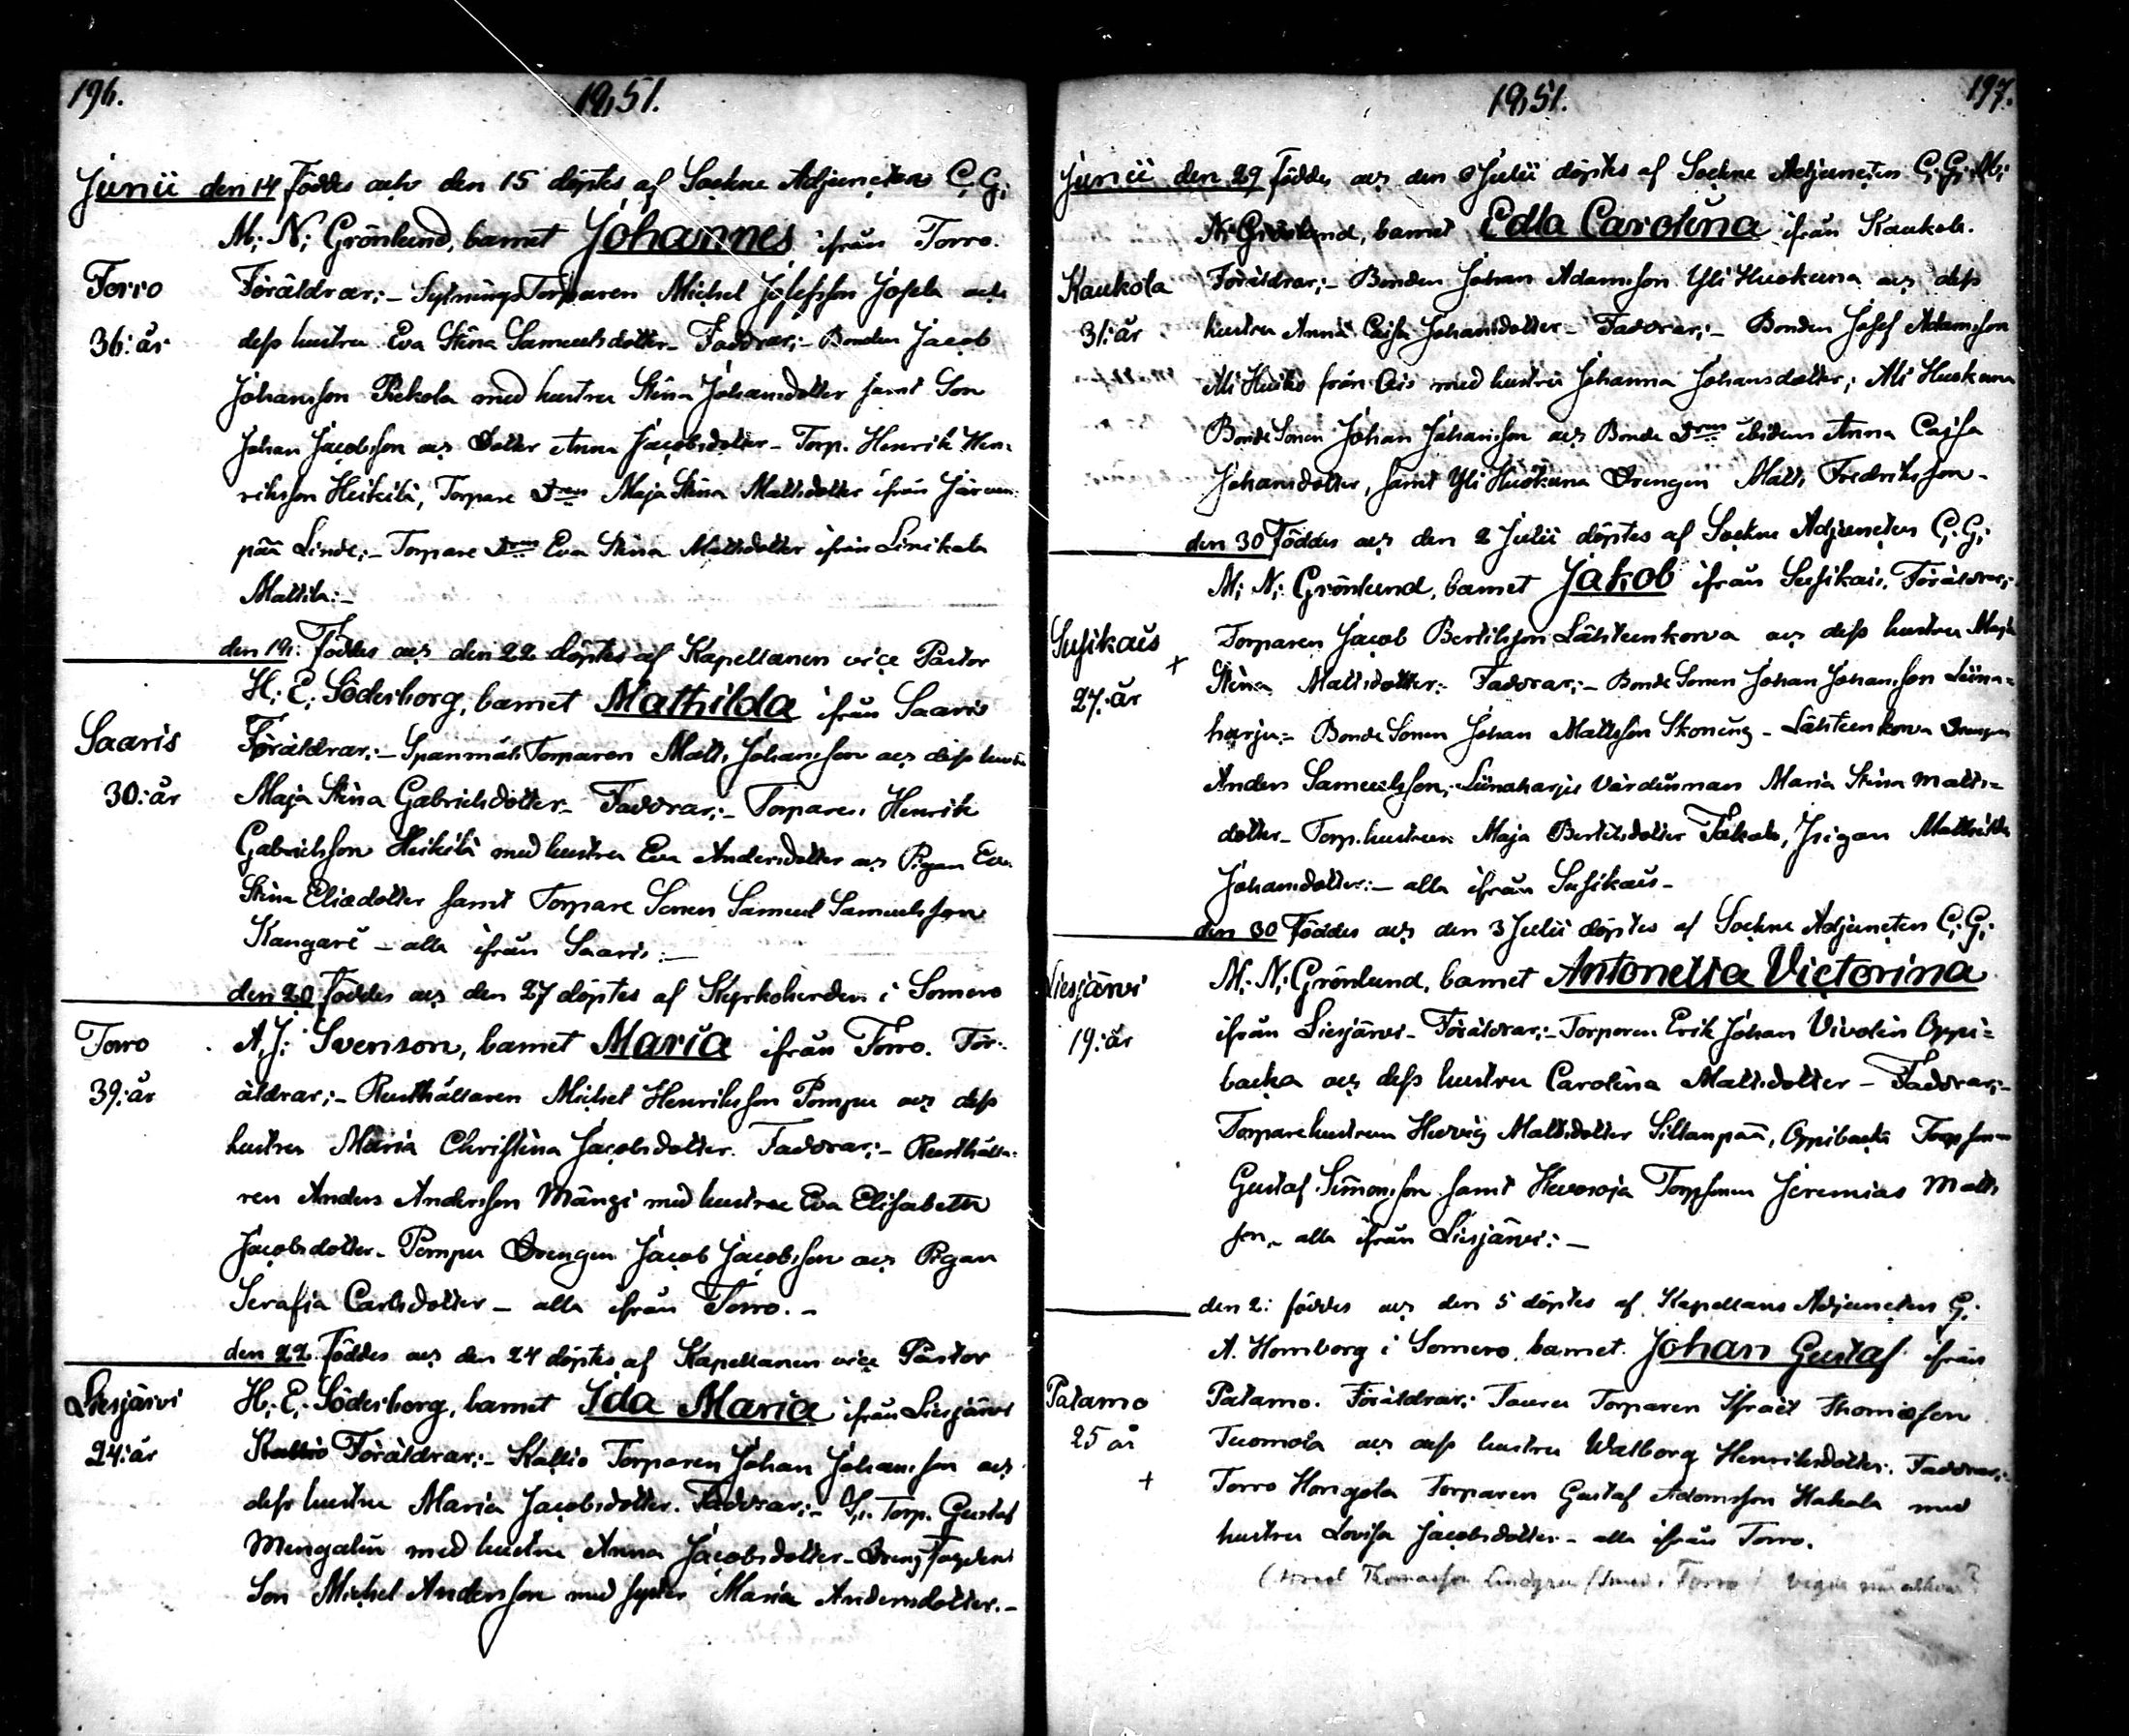 196.
1851.
Junii den 14 föddes och den 15 döptes af Sockne Adjuncten C: G:
M: N: Grönlund, barnet Johannes ifrån Torro.
Torro
36: år
Föräldrar:- Sytnings Torparen Michel Josefsson Josela och
dess hustru Eva Stina Samuelsdotter- Faddrar:- Bonden Jacob
Johansson Piekola med hustru Stina Johansdotter samt Son
Johan Jacobsson och Dotter Anna Jacobsdotter- Torp. Henrik Hen-
riksson Heikilä, Torpare Drn Maja Stina Mattsdotter ifrån Järvem-
pää Linde;- Torpare Drn Eva Stina Mattsdotter ifrån Linikala
Mattila:-
den 19: Föddes och den 22 döptes af Kapellanen vice Pastor
H: E: Söderborg, barnet Mathilda ifrån Saaris
Saaris
30: år
Föräldrar:- Spanmåls Torparen Matts Johansson och dess hustru
Maja Stina Gabrielsdotter- Faddrar:- Torparen Henrik
Gabrielsson Heikilä med hustru Eva Andersdotter och Pigan Eva
Stina Eliædotter samt Torpare Sonen Samuel Samuelsson
Kangare - alla ifrån Saaris:-
den 20 föddes och den 27 döptes af Kyrkoherden i Somero
A. J: Svenson, barnet Maria ifrån Torro. För-
Torro
39: år
äldrar:- Rusthållaren Michel Henriksson Pompu och dess
hustru Maria Christina Jacobsdotter. Faddrar:- Rusthålla-
ren Anders Andersson Mängi med hustru Eva Elisabeth
Jacobsdotter- Pompu Drengen Jacob Jacobsson och Pigan
Serafia Carlsdotter - alla ifrån Torro.-
den 22 Föddes och den 24 döptes af Kapellanen vice Pastor
H: E: Söderborg, barnet Ida Maria ifrån Liesjärvi
Liesjärvi
24: år
Kallio Föräldrar:- Kallio Torparen Johan Johansson och
dess hustru Maria Jacobsdotter. Faddrar:- Torp. Gustaf
Mengalin med hustru Anna Jacobsdotter-
Son Michel Andersson med syster Maria Andersdotter.-
1851.
197.
Junii den 29 föddes och den 6 Julii döptes af Sockne Adjuncten C: G: M:
N: Grönlund, barnet Edla Carolina ifrån Kaukola.
Kaukola
31: år
Föräldrar:- Bonden Johan Adamsson Yli Huokuna och dess
hustru Anna Cajsa Johansdotter- Faddrar:- Bonden Josef Adamsson
med hustru Johanna Johansdotter; Ali Huokuna
Bonde Sonen Johan Johansson och Bonde Drn ibidem Anna Cajsa
Johansdotter, samt Yli Huokuna Drengen Matts Fredriksson-
den 30 Föddes och den 2 Julii döptes af Sockne Adjuncten C: G:
M: N: Grönlund, barnet Jakob ifrån Susikais. Föräldrar:
Susikais
27: år
+
Torparen Jacob Bertilsson Lähteenkorva och dess hustru Maja
Stina Mattsdotter:- Faddrar:- Bonde Sonen Johan Johansson Liina-
harju:- Bonde Sonen Johan Mattsson Skoning - Lähteenkorva Drengen
Anders Samuelsson, Liinaharju Värdinnan Maria Stina Matts-
dotter- Torp. hustrun Maja Bertilsdotter Takala, Pigan Mathilda
Johansdotter:- alla ifrån Susikais-
den 30 föddes och den 3 Julii döptes af Sockne Adjuncten C: G:
M: N: Grönlund, barnet Antonetta Victorina
Liesjärvi
19: år
ifrån Liesjärvi- Föräldrar:- Torparen Erik Johan Vivolin Oppi-
backa och dess hustru Carolina Mattsdotter - Faddrar:-
Torparehustrun Hedvig Mattsdotter Sillanpää, Oppibacka Torpsonen
Gustaf Simonsson samt Hevosoja Torpsonen Jeremias Matts
son- alla ifrån Liesjärvi:-
den 2: föddes och den 5 döptes af Kapellans Adjuncten G:
A. Homborg i Somero, barnet Johan Gustaf ifrån
Patamo
25 år
+
Patamo. Föräldrar: Torparen Israel Thomasson
Tuomola och dess hustru Walborg Henriksdotter. Faddrar:-
Torro Hongola Torparen Gustaf Adamsson Hakala med
hustru Lovisa Jacobsdotter - alla ifrån Torro.
(Israel Thomasson Lindgren (Smed i Torro)